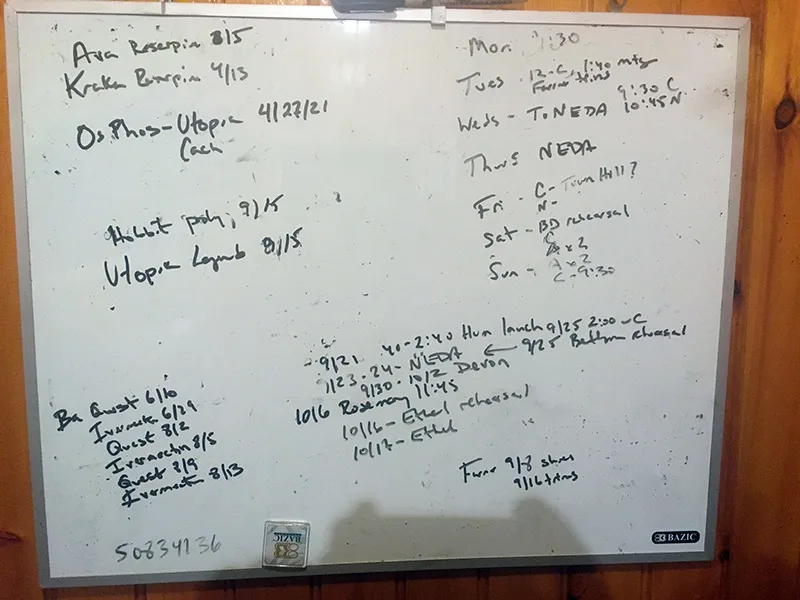 Ava Reserpin 8/5
Kraken Reserpin 4/13
Os Phos-Utopia 4/27/21
Cach
Hobbit poly, 9/15
Utopia Legend 9/15
Ba Quest 6/10
Ivermectin 6/29
Quest 8/2
Ivermectin 8/5
Quest 8/9
Ivermectin 8/13
50834136
Mon 1:30
Tues 12-C, 1:40 mtg
Farrier trims
Weds - To NEDA 9:30 C
10:45 N
Thurs NEDA
Fri - C- Town Hall?
N-
Sat - BD rehearsal
C
A x 2
Sun - A x 2
C-9:30
9/21 40-2:40 Hum lunch 9/25 2:00 -C
1/23-24-NEDA ← 9/25 Bethem rehearsal
9/30-10/2 Devon
10/6 Rosemary 11:45
10/16-Ethel rehearsal
10/17-Ethel
9/8 shoes
9/16 trims
BAZIC
BAZIC